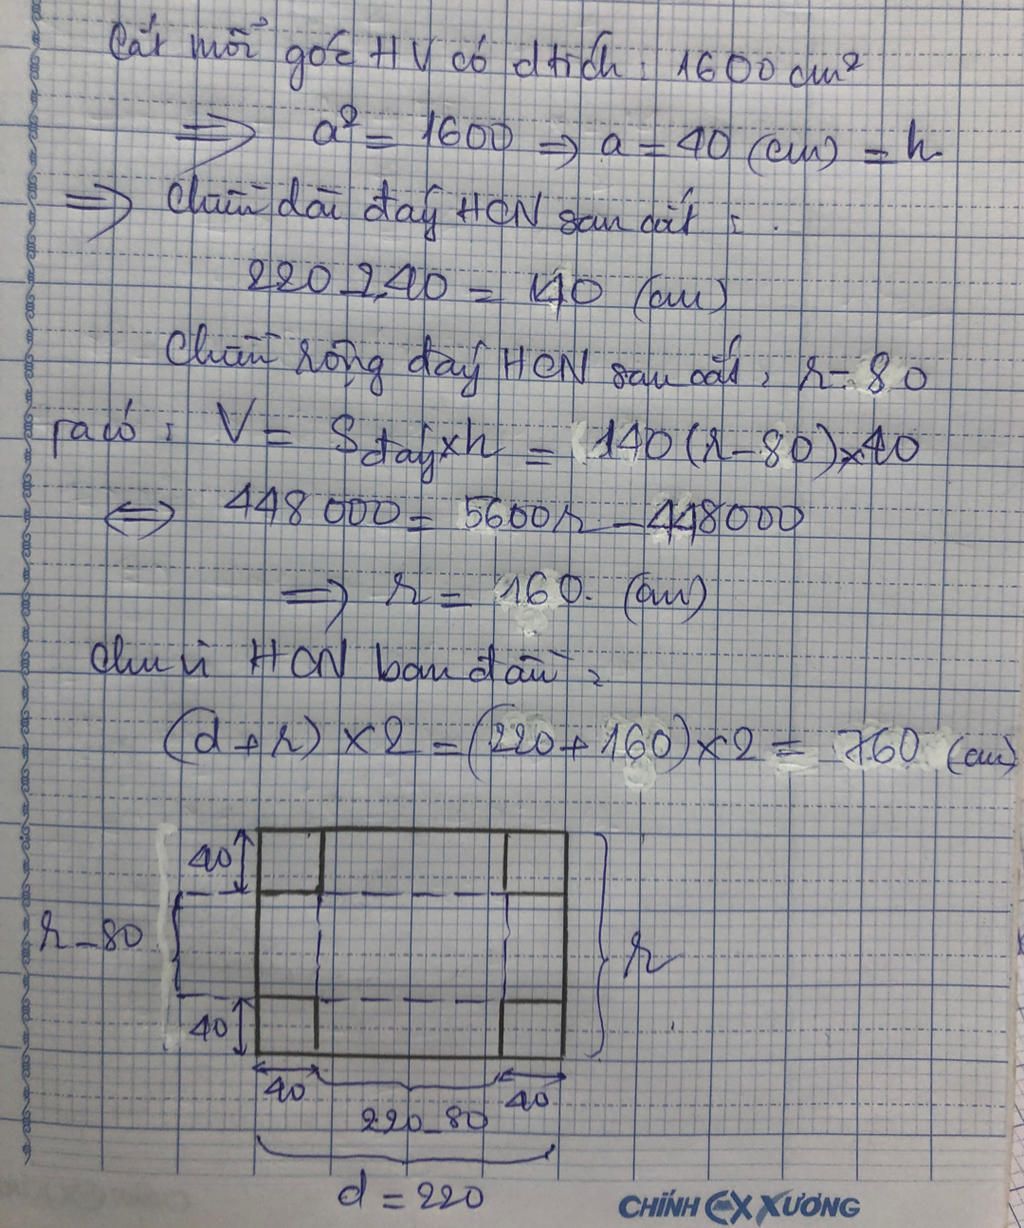 Cắt mỗi góc HV có dtích: 1600 cm²
⇒ a² = 1600 ⇒ a = 40 (cm) = h
⇒ Chiều dài đáy HCN sau cắt:
220 - 2.40 = 140 (cm)
Chiều rộng đáy HCN sau cắt: r - 80
Ta có: V = Sđáy x h = 140(r - 80) x 40
⇔ 448 000 = 5600r - 448000
⇒ r = 160. (cm)
Chu vi HCN ban đầu:
(d + r) x 2 = (220 + 160) x 2 = 760 (cm)
40
r - 80
r
40
40
40
220 - 80
d = 220
CHÍNH EX XƯƠNG